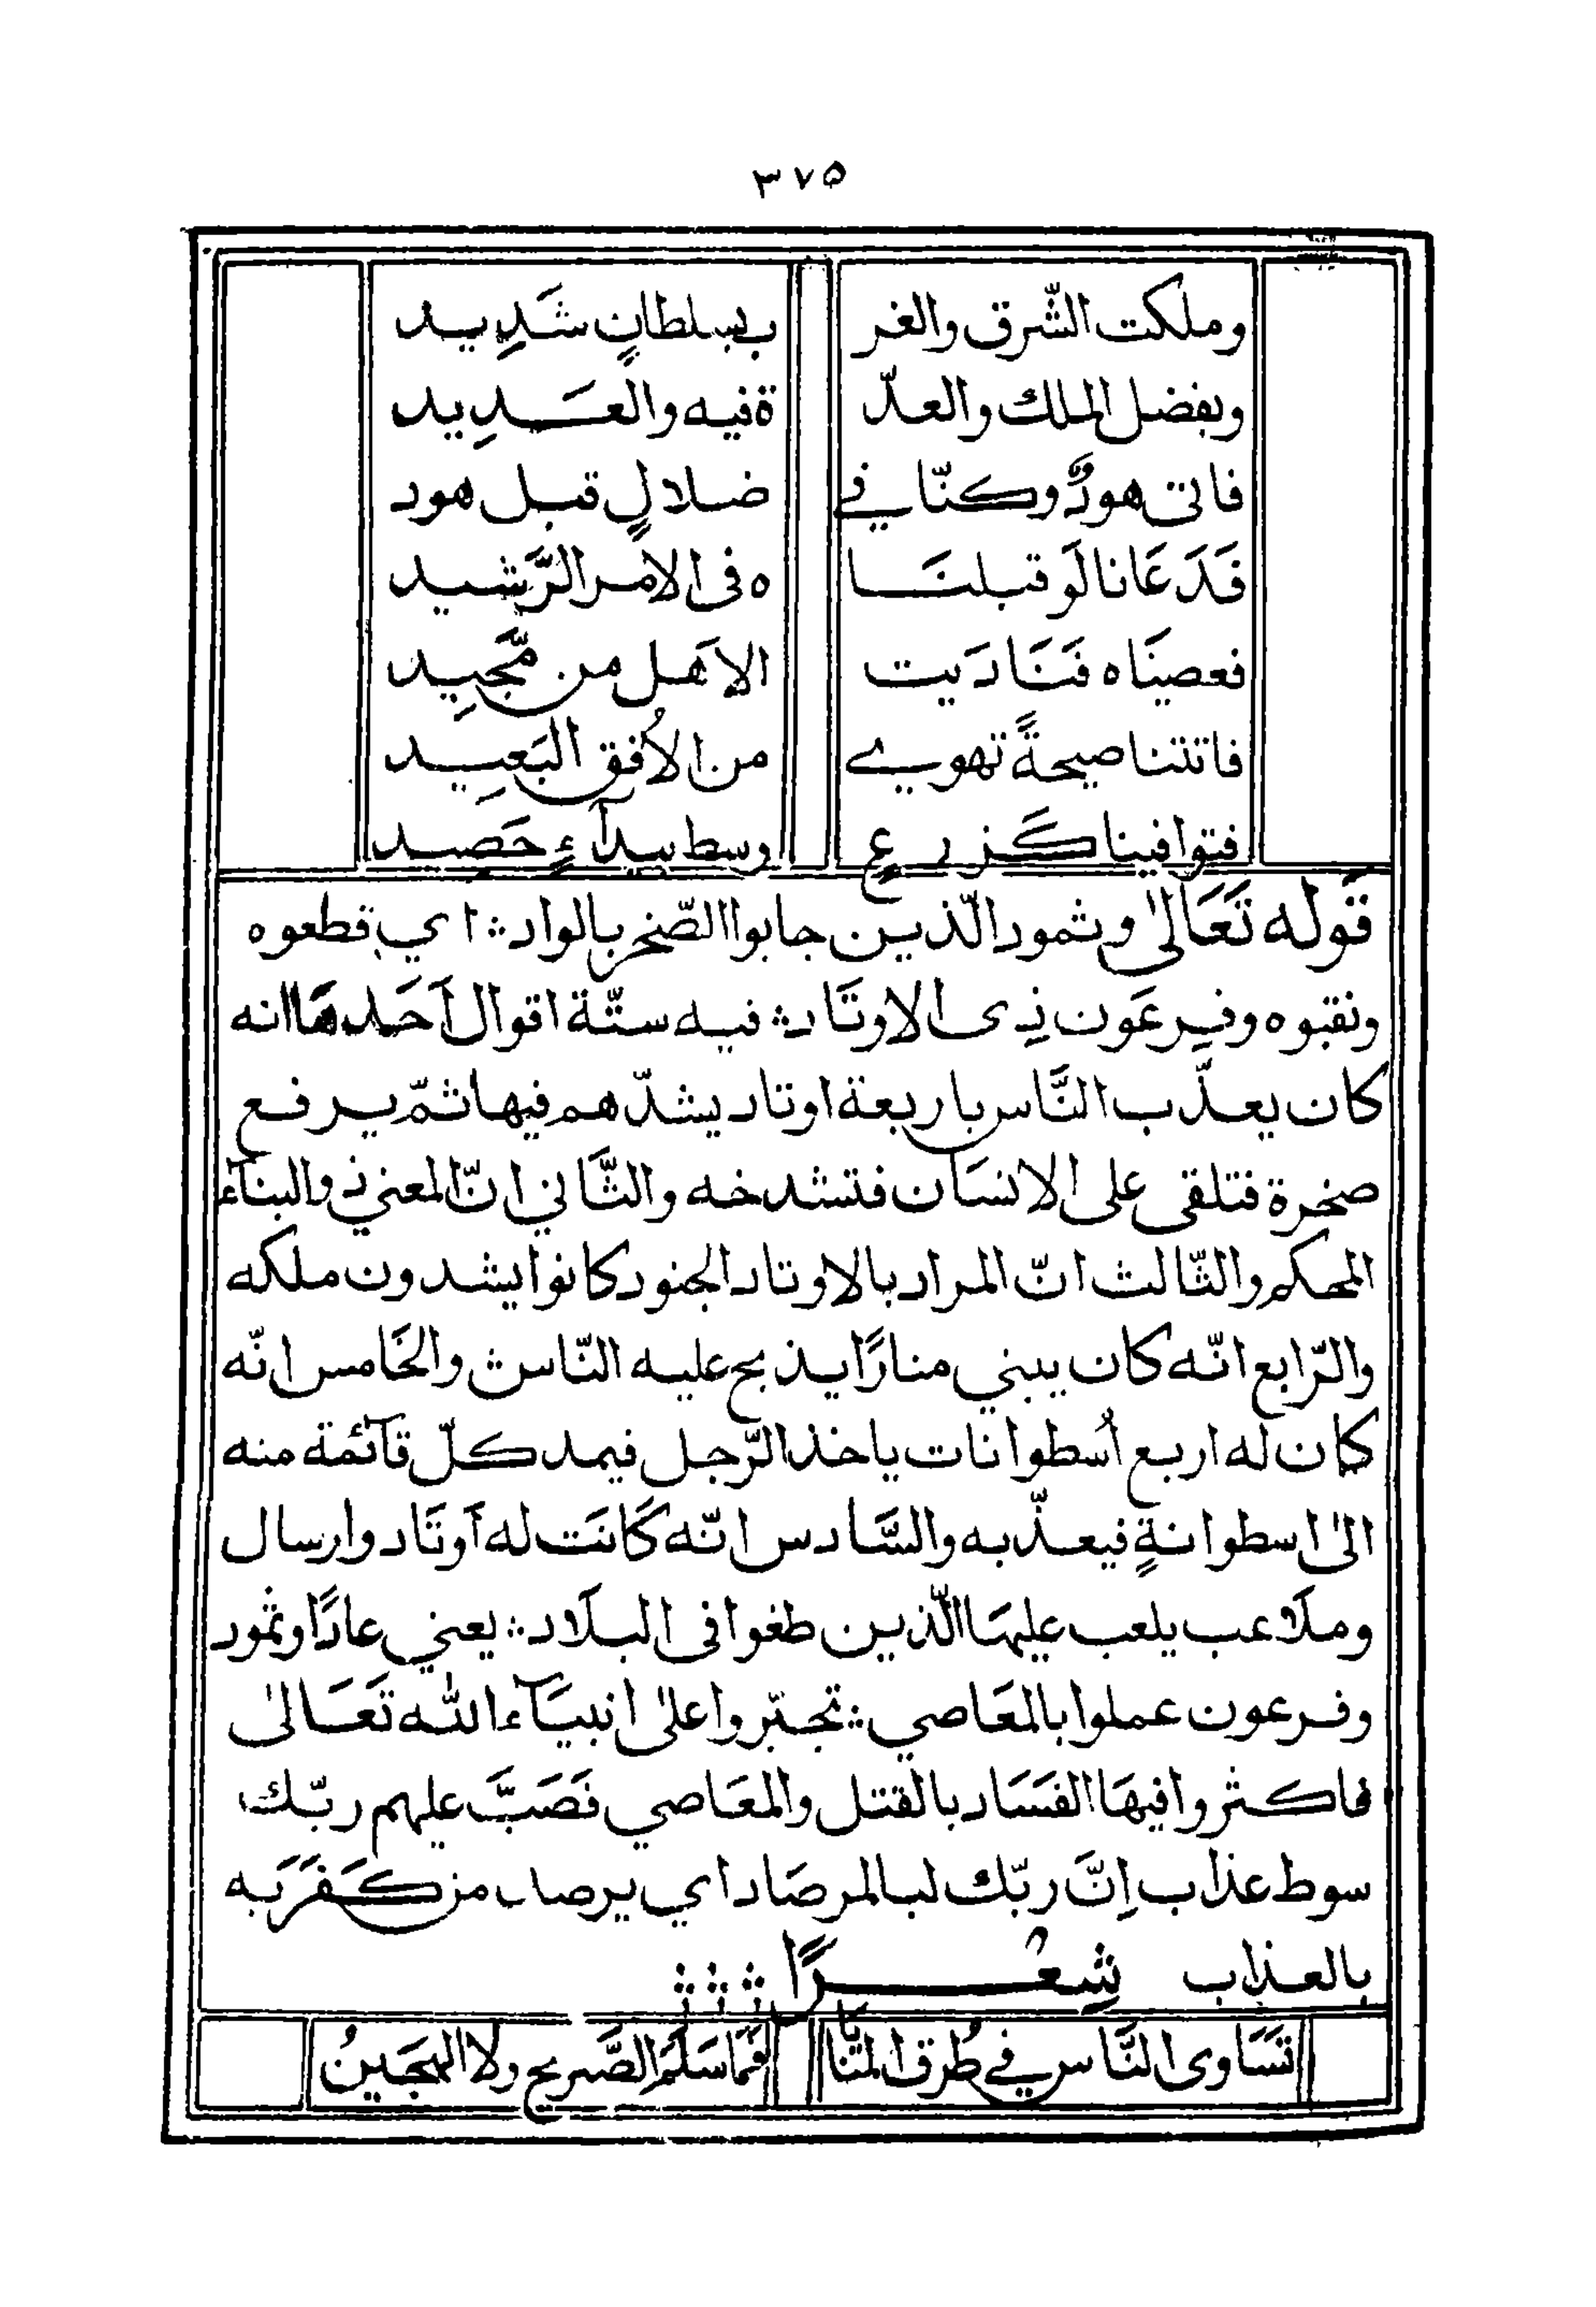 ٣٧٥
وملكت الشّرق والغر ب بسلطانٍ شَدِيد
وبفضل الملك والعدّ ة فيه والعَدِيد
فاتى هودٌ وكنّا في ضلالٍ قبل هود
فَدَعَانا لَو قبلنَا ه فى الامر الرَّشيد
فعصينَاه فَنَادَيت الا هَل من مَّجِيد
فاتتنا صيحةً تهوي من الاُفق البَعِيد
فتوافينا كَزرعٍ وسط بيدآءٍ حَصِيد
قَوله تَعَالىٰ وثمود الّذين جابوا الصّخر بالواد اي قطعوه
ونقبوه وفِرعَون ذِى الاوتَاد فيه ستّة اقوال اَحَدهَا انه
كان يعذّب النَّاس باربعة اوتاد يشدّهم فيها ثمّ يرفع
صخرة فتلقى على الانسَان فتشدخه والثَّاني انّ المعنى ذو البنآء
المحكم والثّالث انّ المراد بالاوتاد الجنود كانوا يشدون ملكه
والرّابع انّه كان يبني منارًا يذبح عليه النّاس والخَامس انّه
كان له اربع اُسطوانات ياخذ الرّجل فيمد كلّ قآئمة منه
الىٰ اسطوانةٍ فيعذّبه والسَّادس انّه كَانَت له اَوتَاد وارسال
وملَاعب يلعب عليهَا الّذين طغوا فى البلَاد يعني عادًا وثمود
وفرعون عملوا بالمعَاصي تجبّروا على انبيَآء الله تَعَالىٰ
فاكثروا فيهَا الفَسَاد بالقتل والمعَاصي فَصَبَّ عليهم ربّك
سوط عذاب اِنَّ ربّك لبالمرصَاد اي يرصد من كَفَرَ به
بالعذاب شِعْرًا
تَسَاوى النَّاس في طُرق المنَايَا فَمَا سَلمَ الصَّريح ولا الهَجَينُ